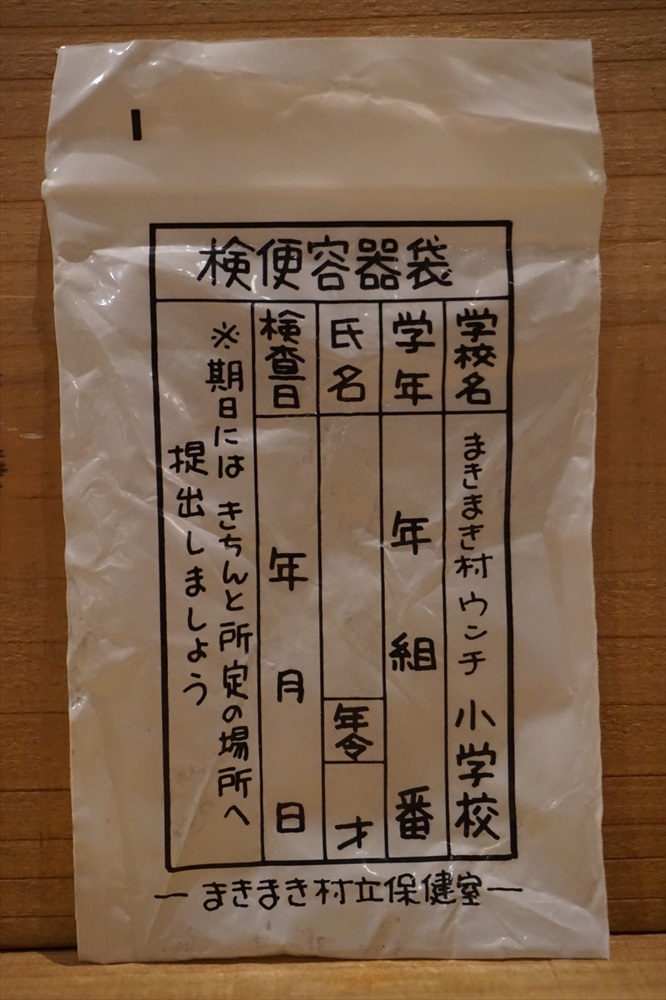 検便容器袋
学校名
まきまき村ウンチ 小学校
学年
年 組 番
氏名
年令
才
検査日
年 月 日
※期日には きちんと所定の場所へ
提出しましょう
ー まきまき村立保健室 ー